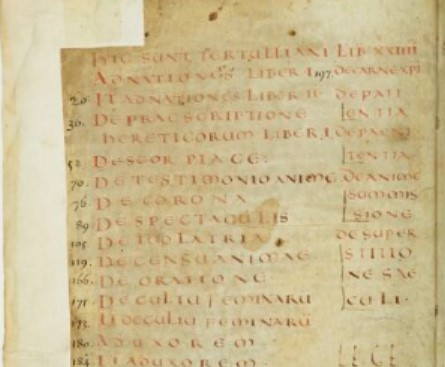 HIC SUNT TERTULLIANI LIB XXIIII
AD NATIONES LIBER I 197. DE CARNE XPI
20. IT AD NATIONES LIBER II DE PATI
36. DE PRAESCRIPTIONE ENTIA
HERETICORUM LIBER I DE PAENI
52. DE SCORPIACE: TENTIA
70. DE TESTIMONIO ANIME DE ANIME
76. DE CORONA SUMMIS
89. DE SPECTACULIS SIONE
105. DE IDOLATRIA DE SUPER
119. DE CENSU ANIMAE STITIO
166. DE ORATIONE NE SAE
171. DE CULTU FEMINARU CULI
175. IT DE CULTU FEMINARU
180. AD UXOREM
184. IT AD UXOREM LEGE